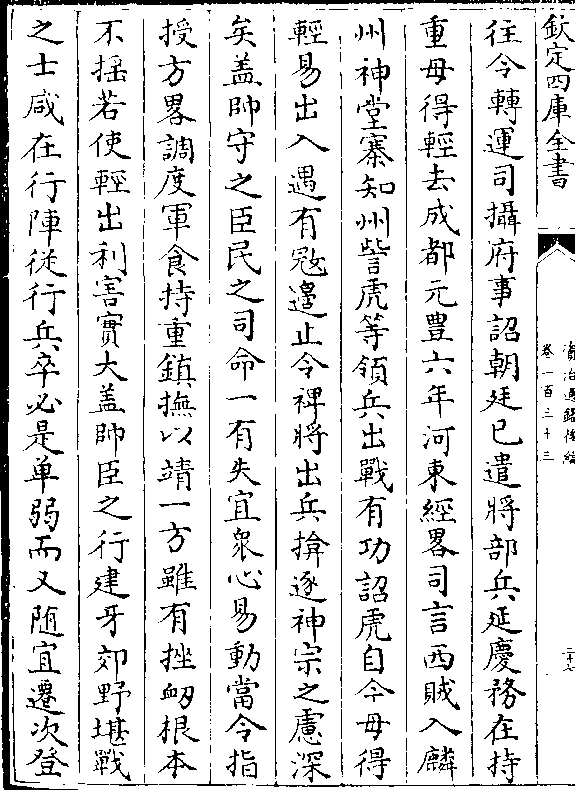 欽定四庫全書
資治通鑑後編
卷一百三十三
二十七
往令轉運司攝府事詔朝廷已遣將部兵延慶務在持
重毋得輕去成都元豐六年河東經畧司言西賊入麟
州神堂寨知州訾虎等領兵出戰有功詔虎自今毋得
輕易出入遇有冦邊止令裨將出兵揜逐神宗之慮深
矣盖帥守之臣民之司命一有失宜衆心易動當令指
授方畧調度軍食持重鎮撫以靖一方雖有挫衂根本
不揺若使輕出利害實大盖帥臣之行建牙郊野堪戰
之士咸在行陣從行兵卒必是单弱而又随宜遷次登